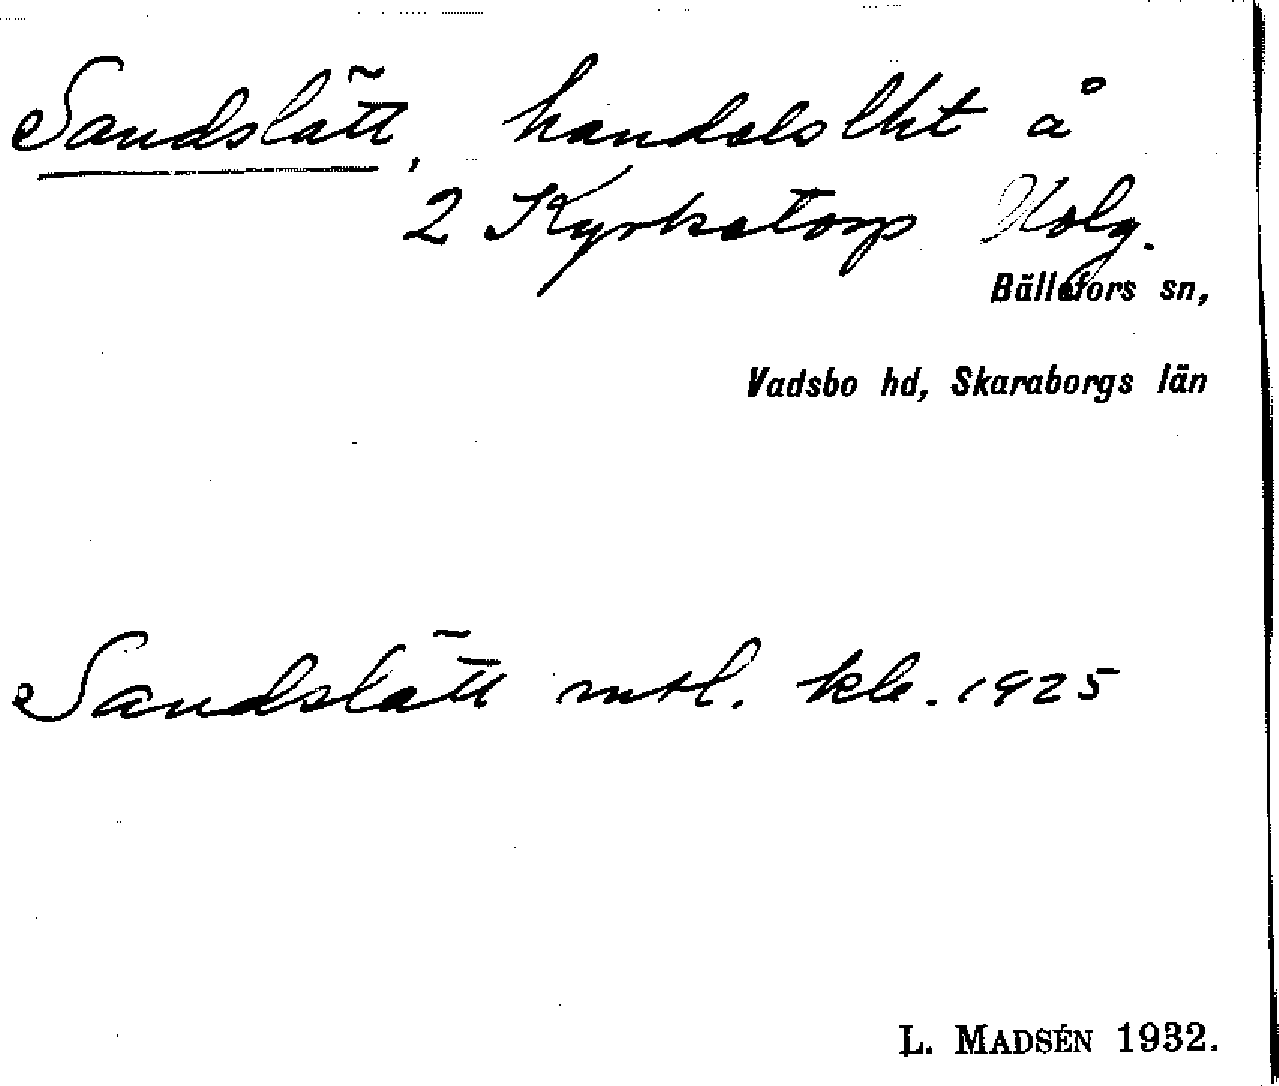 Sandslätt, handelslht å
2 Kyrketorp Holg.
Bällefors sn,
Vadsbo hd, Skaraborgs län
Sandslätt mtl. kla. 1925
L. MADSÉN 1932.